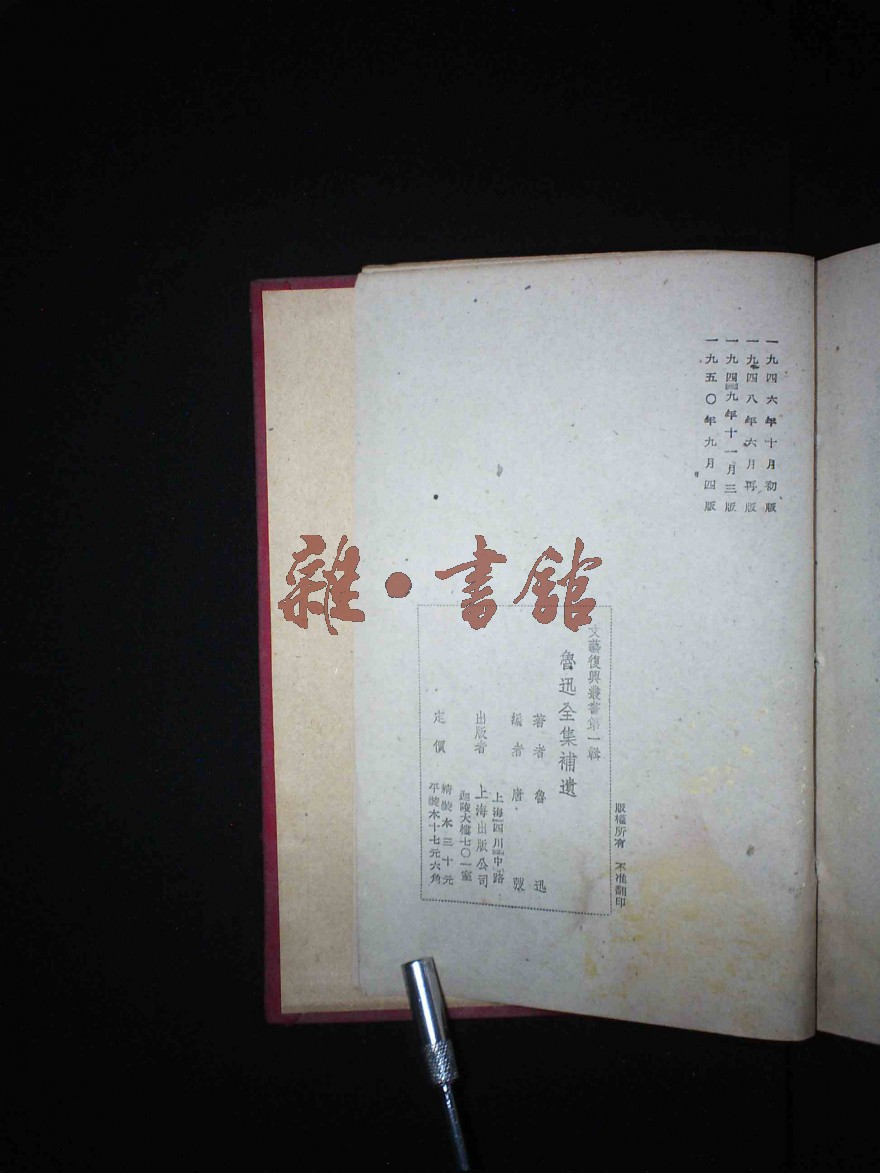 一九四六年十月初版
一九四八年六月再版
一九四九年十一月三版
一九五〇年九月四版
版權所有 不准翻印
文藝復興叢書第一輯
魯迅全集補遺
著者 魯迅
編者 唐弢
出版者 上海出版公司
上海四川中路
迦陵大樓七〇一室
定價 精裝本三十元
平裝本十七元六角
雜·書館